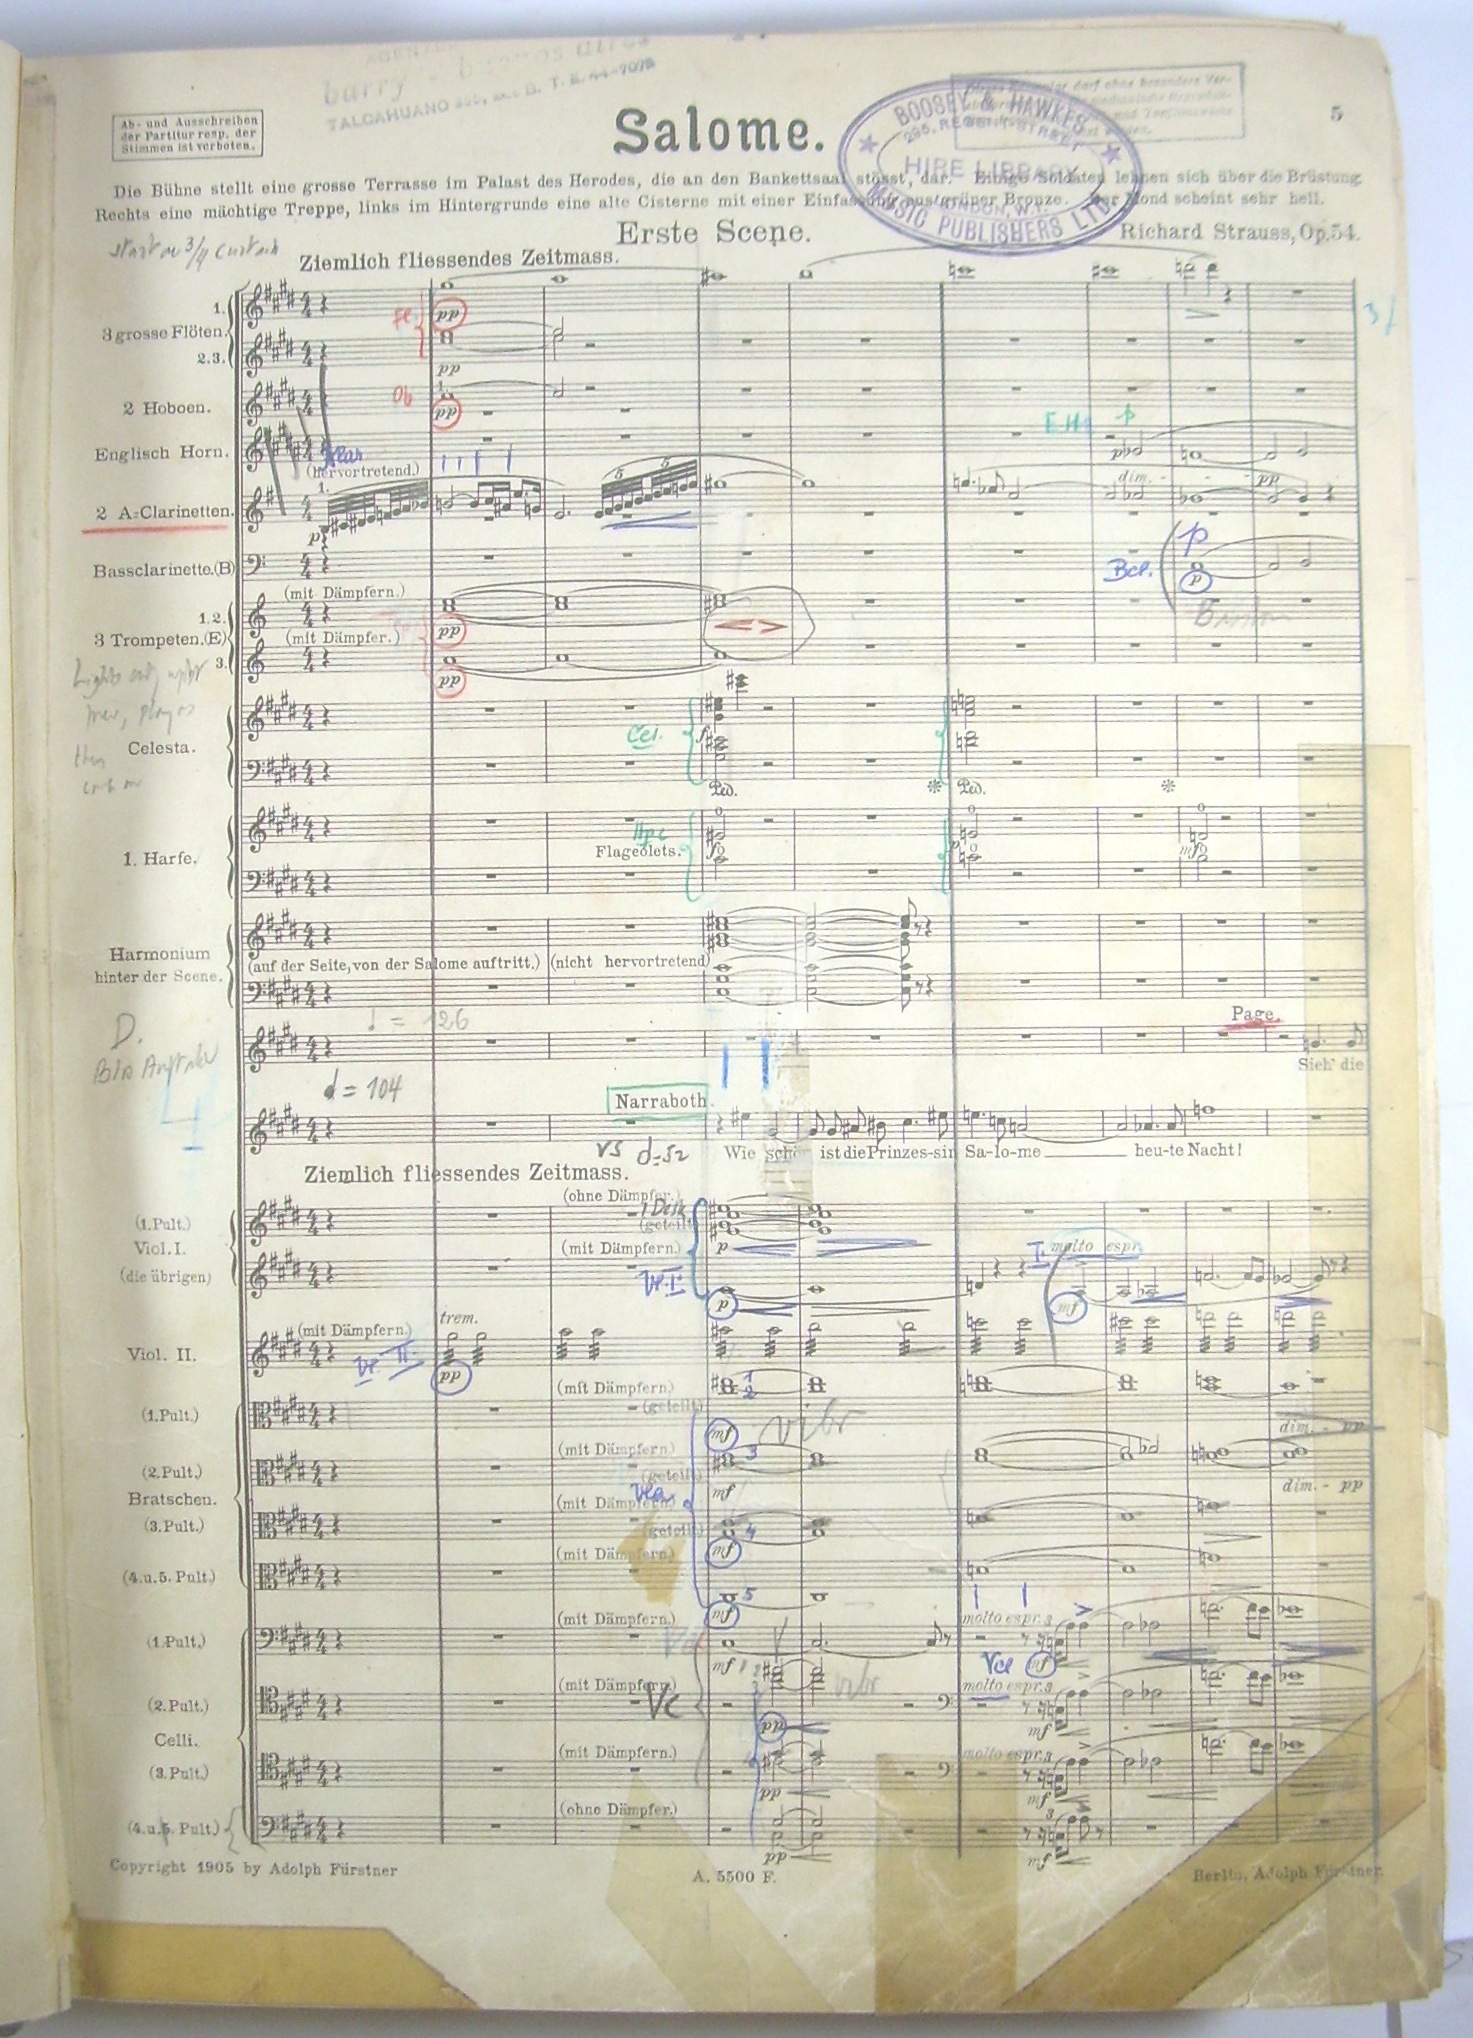 barry - buenos aires
TALCAHUANO
Ab- und Ausschreiben
der Partitur resp. der
Stimmen ist verboten.
Salome.
BOOSEY & HAWKES
295, REGENT STREET
HIRE LIBRARY
LONDON, W.1.
MUSIC PUBLISHERS LTD.
5
Die Bühne stellt eine grosse Terrasse im Palast des Herodes, die an den Bankettsaal stösst, dar. Einige Soldaten lehnen sich über die Brüstung.
Rechts eine mächtige Treppe, links im Hintergrunde eine alte Cisterne mit einer Einfassung aus grüner Bronze. Der Mond scheint sehr hell.
Erste Scene.
Richard Strauss, Op. 54.
start on 3/4 curtain
Ziemlich fliessendes Zeitmass.
1.
3 grosse Flöten.
2.3.
Fl.
pp
pp
2 Hoboen.
Ob
1.
pp
Englisch Horn.
E.H.
p
pp
(hervortretend.)
1.
2 A=Clarinetten.
p
5
5
dim. -
pp
Bassclarinette.(B)
Bcl.
p
p
(mit Dämpfern.)
1.2.
3 Trompeten.(E)
(mit Dämpfer.)
3.
pp
pp
Celesta.
Cel.
f
Ped.
Ped.
1. Harfe.
Flageolets.
f
p
mf
Harmonium
hinter der Scene.
(auf der Seite, von der Salome auftritt.)
(nicht hervortretend)
= 126
Page.
Sieh' die
D.
= 104
Narraboth.
Wie schön ist die Prinzes-sin Sa-lo-me heu-te Nacht!
Ziemlich fliessendes Zeitmass.
(ohne Dämpfer.)
(1. Pult.)
(geteilt)
Viol. I.
(mit Dämpfern.)
p
molto espr.
(die übrigen)
p
mf
(mit Dämpfern.)
trem.
Viol. II.
pp
(mit Dämpfern.)
1
2
(geteilt)
(1. Pult.)
mf
vibr
dim. - pp
(mit Dämpfern.)
3
(2. Pult.)
(geteilt)
mf
dim. - pp
Bratschen.
(mit Dämpfern.)
(3. Pult.)
(geteilt)
4
mf
(mit Dämpfern.)
(4.u.5. Pult.)
5
mf
(mit Dämpfern.)
molto espr. 3
(1. Pult.)
mf
Vcl
mf
(mit Dämpfern.)
Vc
vibr
molto espr. 3
(2. Pult.)
pp
mf
Celli.
(mit Dämpfern.)
molto espr. 3
(3. Pult.)
pp
mf
(ohne Dämpfer.)
3
(4.u.5. Pult.)
pp
mf
Copyright 1905 by Adolph Fürstner
A. 5500 F.
Berlin, Adolph Fürstner.